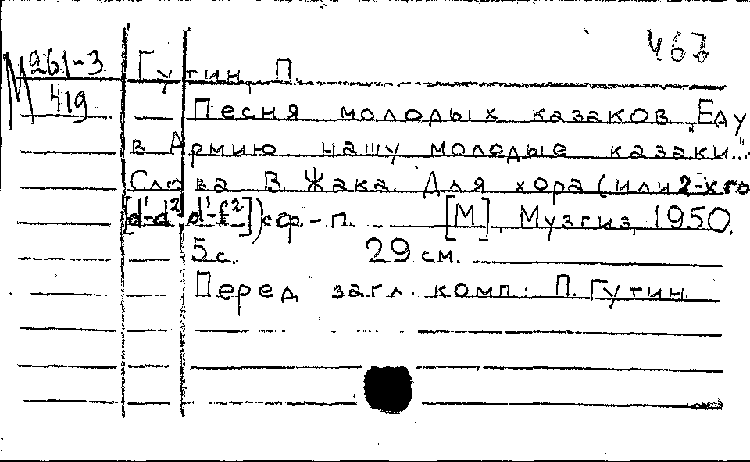 467
М 261-3
419
Гутин, П.
Песня молодых казаков „Еду
в Армию нашу молодые казаки..."
Слова В. Жака. Для хора (или 2-хго
[d¹-d², d¹-f²]) с ф.-п. [М], Музгиз, 1950.
5 с. 29 см.
Перед загл. комп.: П. Гутин